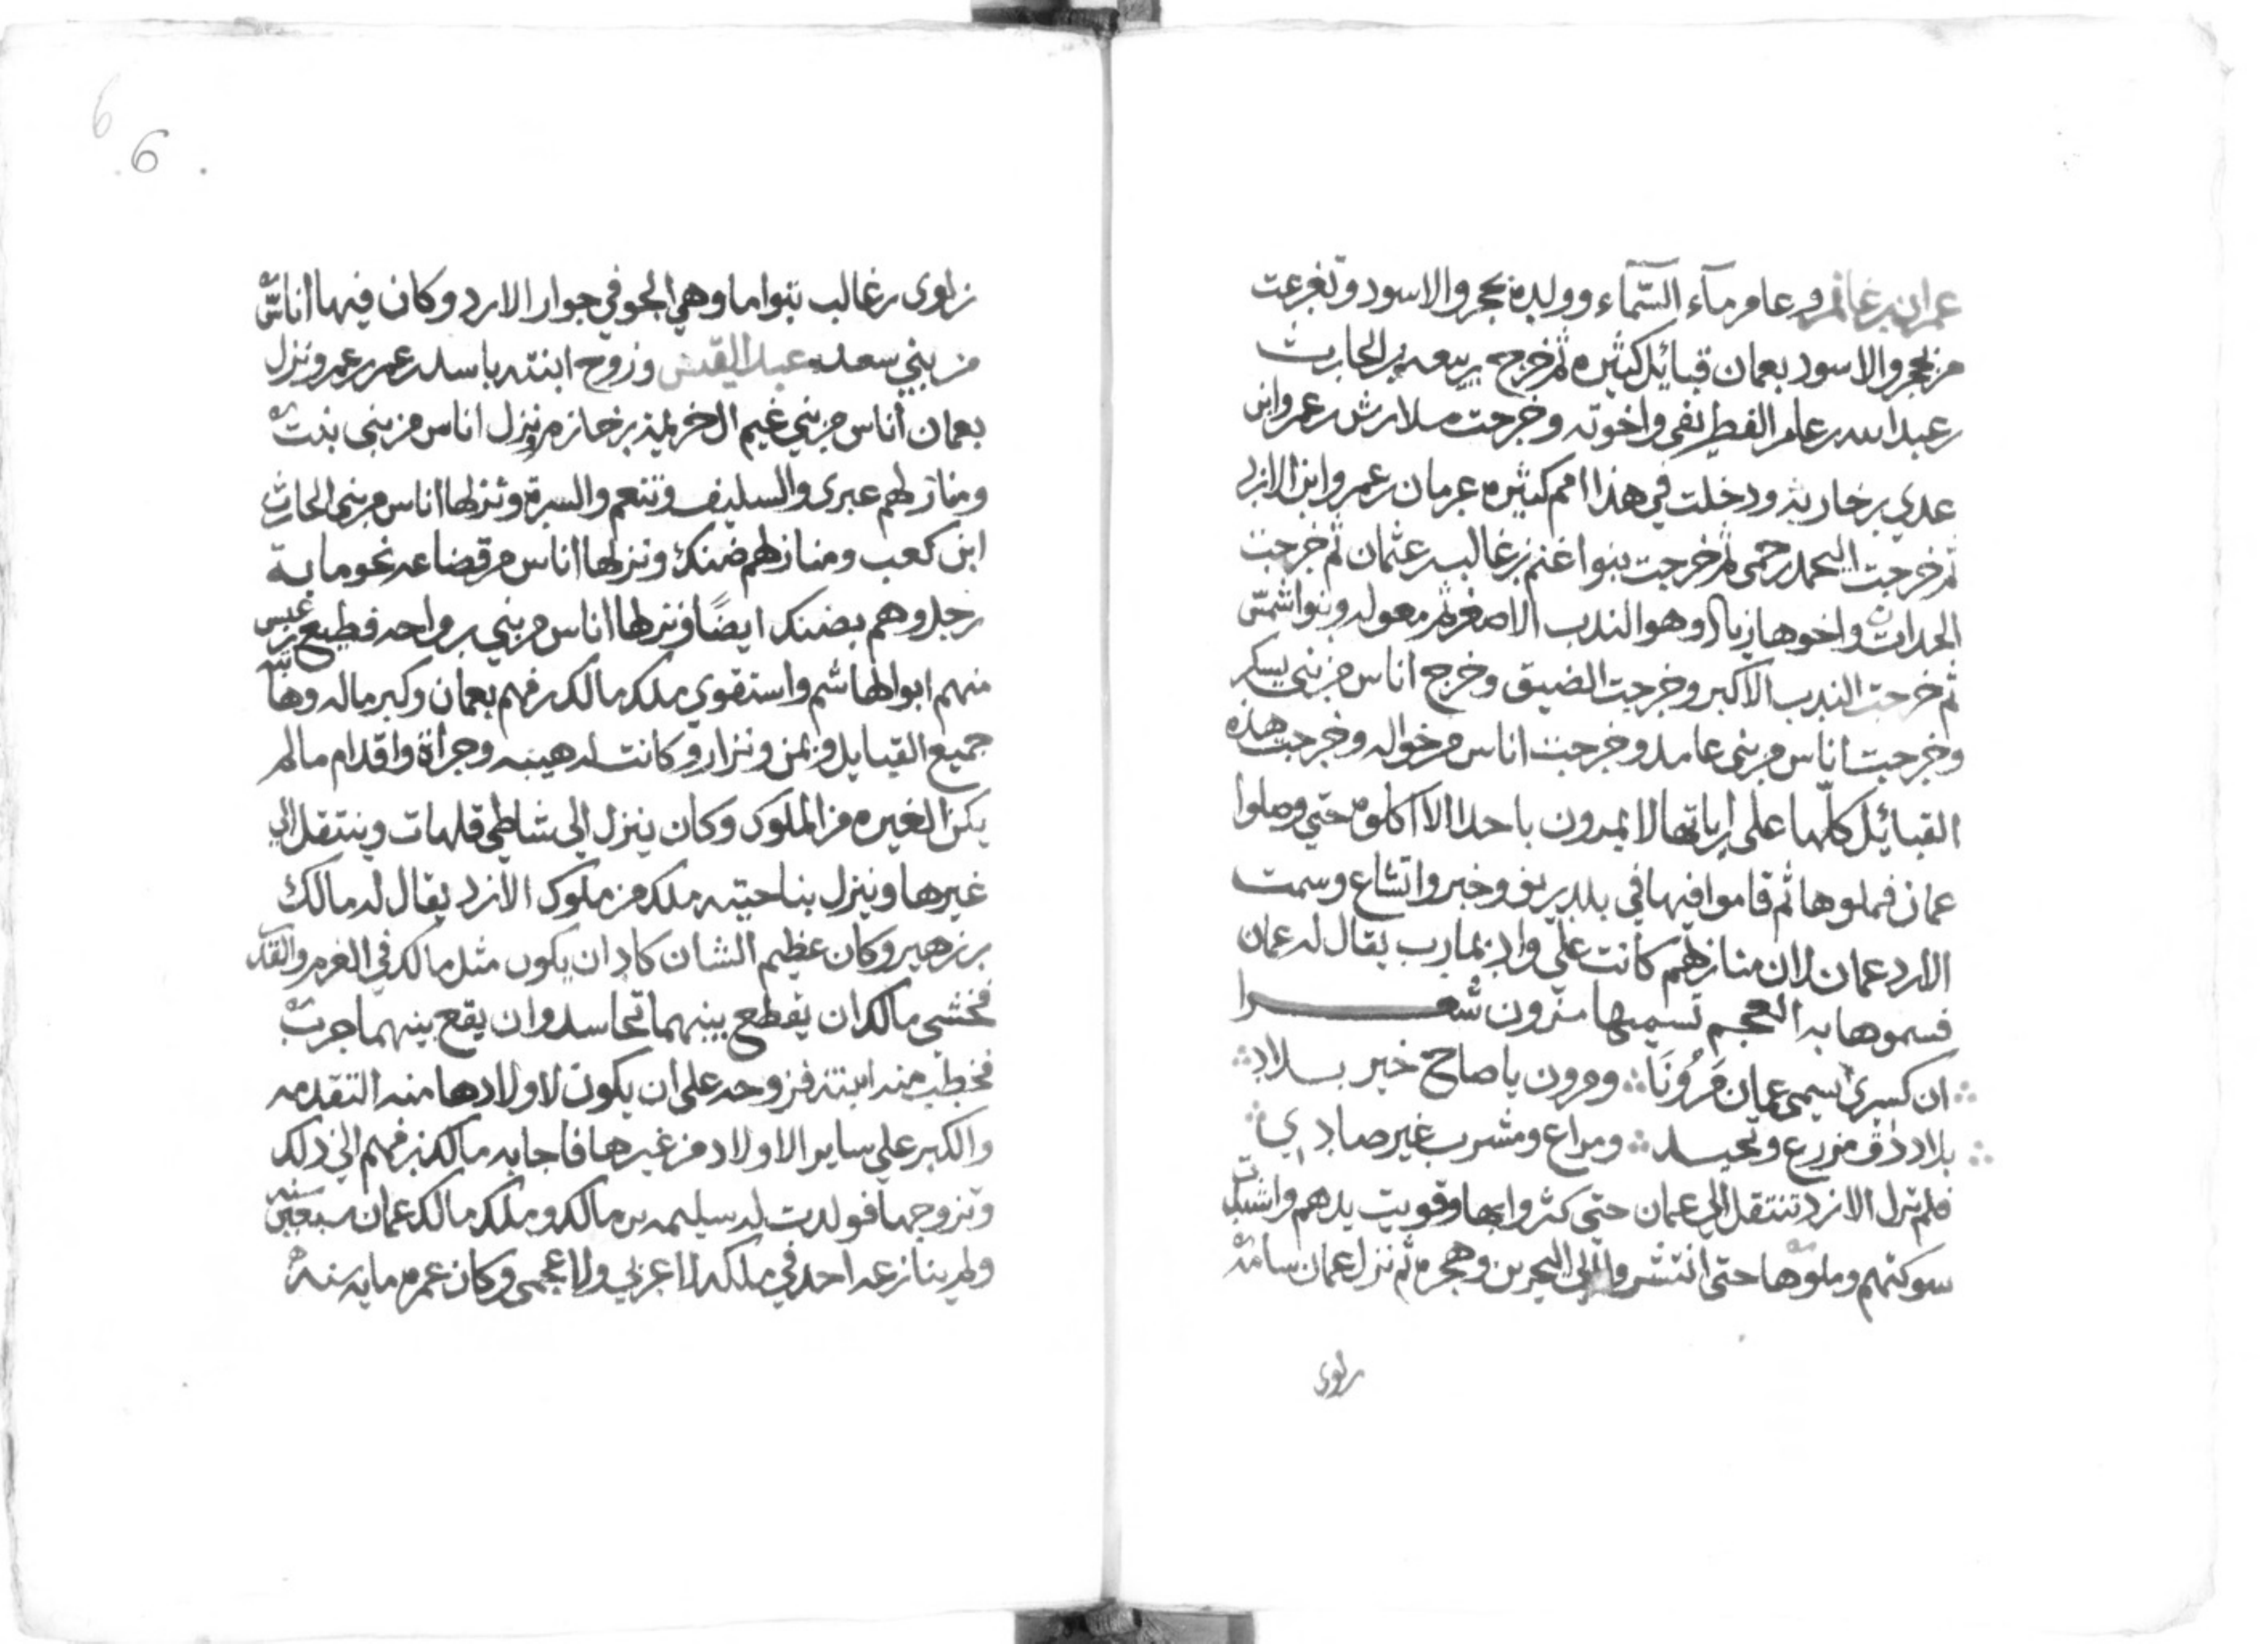 عمران بن عامر وعامر مآء السّماء وولده حجر والاسود وتفرعت
من حجر والاسود بعمان قبائيل كثيره ثم خرج ربيعه بن الحارث
بن عبدالله بن عامر الغطريفي واخوته وخرجت ملادرش بن عمرو ابن
عدي بن حارثه ودخلت في هذا امم كثيره عرمان بن عمرو ابن الازد
ثم خرجت اليحمد رحمى ثم خرجت بنوا غنم بن غالب بن عثمان ثم خرجت
الحدات واخوها زياد وهو الندب الاصغر ثم معوله وبنوا شمس
ثم خرجت الندب الاكبر وخرجت الضيق وخرج اناس من بني يسكر
وخرجت اناس من بني عامد وخرجت اناس من خواله وخرجت هذه
القبائيل كلّها على اراياتها لا يمرون باحد الا اكلوه حتى وصلوا
عمان فملوها ثم قاموا فيها في بلد ريف وخير واتشاع وسمت
الازد عمان لان منازلهم كانت علي واد بمارب يقال له عمان
فسموها به العجم تسميها مزون شعـــرا
ان كسرى سمى عمان مَزُونَا ومزون يا صاح خير بـلاد
بلاد ذات مزرع ونخيل ومراع ومشرب غير صادي
فلم تزل الازد تنتقل الي عمان حتى كثروا بها وقويت يدهم واشتدت
سوكتهم وملوها حتى انتشروا الي البحرين وهجر ثم نزل عمان سامة
بن لوى
بن لوى بن غالب بتوام وهي الجو في جوار الازد وكان فيها اناس
من بني سعد عبد القيس وزوج ابنته باسد بن عمر بن عمر ونزل
بعمان أناس من بني غيم ال خريمه بن خازم ونزل اناس من بني بنت
ومنازلهم عبرى والسليف وتنعم والسرة ونزلها اناس من بني الحارث
ابن كعب ومنازلهم ضنك ونزلها اناس من قضاعه نحو ماية
رجل وهم بضنك ايضًا ونزلها اناس من بني رواحه قطيع بن عبس
منهم ابوالهاشم واستقوى ملك مالك بن فهم بعمان وكبر ماله وهابته
جميع القبايل من يمن ونزار وكانت له هيبه وجرأة واقدام ما لم
يكن لغيره من الملوك وكان ينزل الى شاطى قلهات وينتقل الي
غيرها وينزل بناحيته ملك من ملوك الازد يقال له مالك
بن زهير وكان عظيم الشان كاد ان يكون مثل مالك في العزم والقدر
فخشي مالك ان يقطع بينهما تحاسد وان يقع بينهما حرب
فخطب منه ابنته فزوجه على ان يكون لاولادها منه التقدمه
والكبر على ساير الاولاد من غيرها فاجابه مالك بن فهم الى ذلك
وتزوجها فولدت له سليمه بن مالك وملك مالك عمان سبعين سنه
ولم ينازعه احد في ملكه لا عربي ولا عجمى وكان عمره مايه سنه
6
6